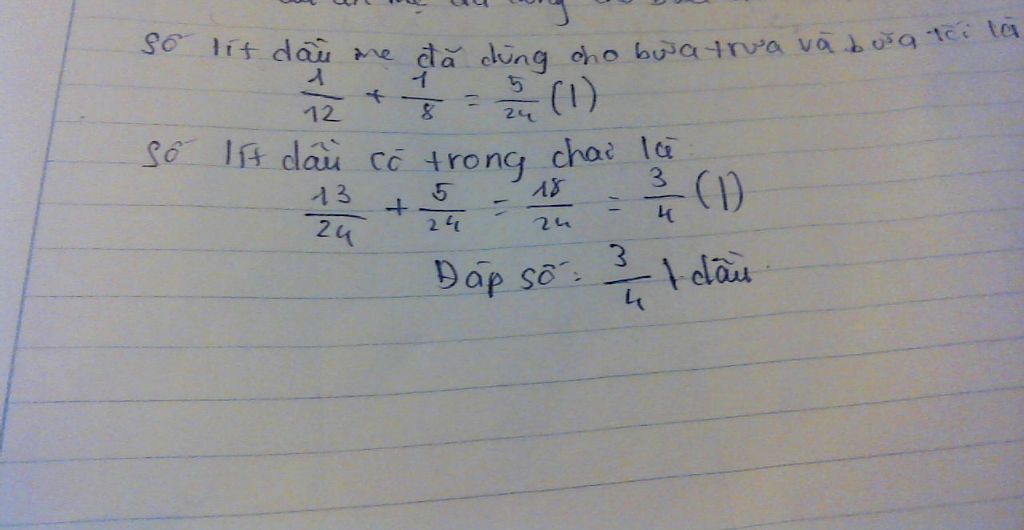 Số lít dầu mẹ đã dùng cho bữa trưa và bữa tối là
1/12 + 1/8 = 5/24 (l)
Số lít dầu có trong chai là:
13/24 + 5/24 = 18/24 = 3/4 (l)
Đáp số: 3/4 l dầu.